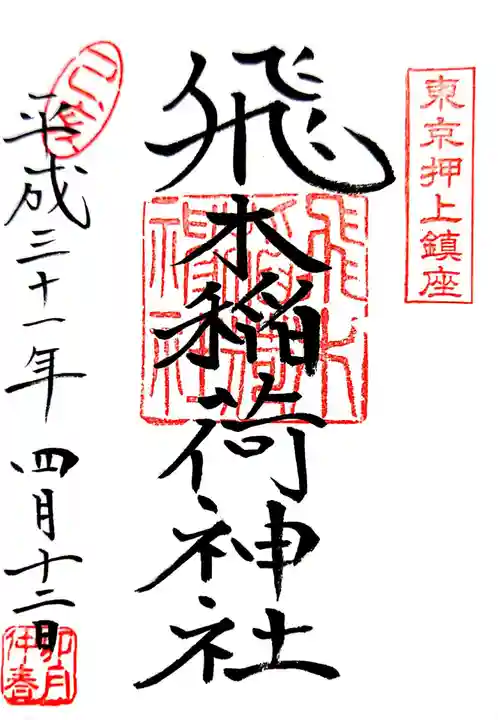 東京押上鎮座
飛木稲荷神社
飛木
稲荷
神社
平成三十一年 四月十二日
卯月
仲春